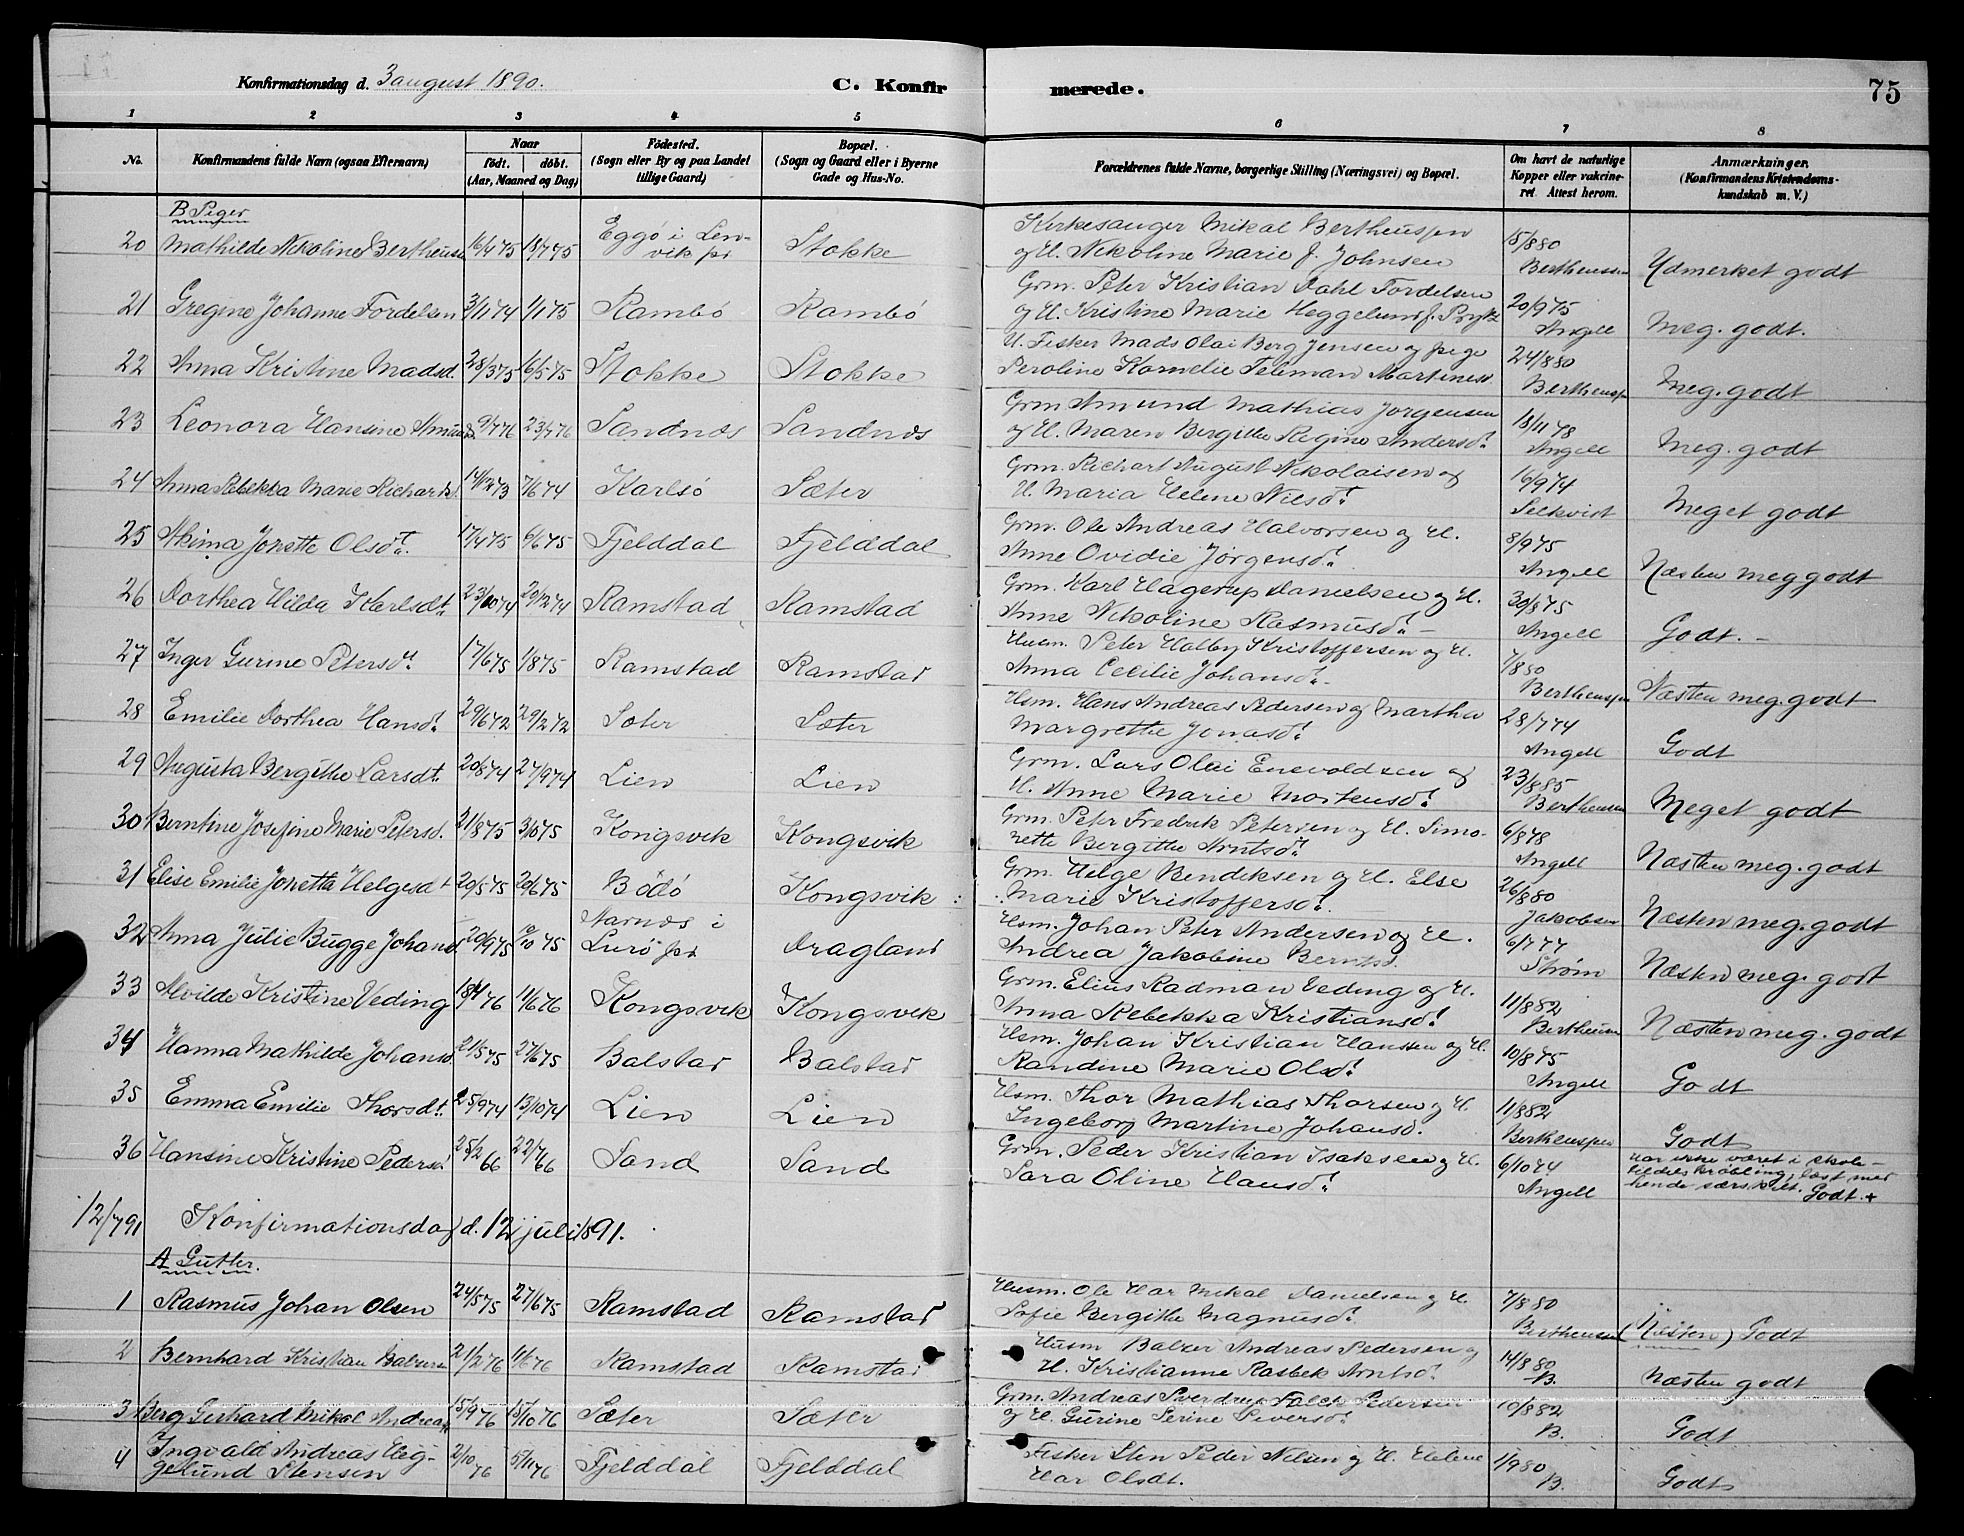 Konfirmationsdag d. 3 august 1890. C. Konfirmerede. 75
1 2 3 4 5 6 7 8
No. Konfirmandens fulde Navn (ogsaa Efternavn) Naar födt. döbt. (Aar, Maaned og Dag) Födested. (Sogn eller By og paa Landet tillige Gaard) Bopæl. (Sogn og Gaard eller i Byerne Gade og Hus-No. Forældrenes fulde Navne, borgerlige Stilling (Næringsvei) og Bopæl. Om havt de naturlige Kopper eller vakcineret. Attest herom. Anmærkninger. (Konfirmandens Kristendomskundskab m. V.)
B Piger
20 Mathilde Nikoline Bertheuss 16/4 75 18/7 75 Eggö i Lenvik pr Stokke Kirkesanger Mikal Bertheussen
og H. Nikoline Marie f. Johnsen 15/8 80 Bertheussen Udmerket godt
21 Gregine Johanne Fordelsen 3/11 74 1/1 75 Rambö Rambö Grm. Peter Kristian Dahl Fordelsen
og H. Kristine Marie Heggelund f. 20/9 75 Angell Meg. godt.
22 Anna Kristine Madsd. 28/3 75 16/5 75 Stokke Stokke U. Fisker Mads Olai Berg Jensen og pige
Peroline Kornelie Teilman Martinesd 24/8 80 Bertheussen Meg. godt
23 Leonora Hansine Amunds 9/4 76 23/4 76 Sandnæs Sandnæs Grm Amund Mathias Jörgensen
og H. Maren Bergithe Regine Andersdt. 18/11 78 Angell Meg. godt
24 Anna Rebekka Marie Richardsd. 14/12 73 7/6 74 Karlsö Sæter Grm. Richart August Nikolaisen og
H. Maria Helene Nilsdt. 16/9 74 Selkvist Meget godt
25 Mima Jonette Olsdt. 17/4 75 6/6 75 Fjelddal Fjelddal Grm. Ole Andreas Halvorsen og H.
Anne Ovidie Jörgensdt. 8/9 75 Angell Næsten meg godt
26 Dorthea Hilda Karlsdt. 23/10 74 20/12 74 Ramstad Ramstad Grm. Karl Hagerup Danielsen og H.
Anne Nikoline Rasmusdt. 30/8 75 Angell Godt.
27 Inger Gurine Petersdt 17/6 75 1/8 75 Ramstad Ramstad Husm. Peter Halby Kristoffersen og H.
Anna Cecilie Johansdt. 7/8 80 Bertheussen Næsten meg. godt
28 Emilie Dorthea Hansdt 29/6 72 29/2 72 Sæter Sæter Hsm. Hans Andreas Pedersen og Martha
Margrethe Jonasdt. 28/7 74 Angell Godt
29 Augusta Bergithe Larsdt. 20/8 74 27/9 74 Lien Lien Grm. Lars Olai Enevoldsen og
H. Anne Marie Mortensdt. 23/8 85 Bertheussen Meget godt
30 Berntine Josefine Marie Petersd. 21/8 75 3/10 75 Kongsvik Kongsvik Grm. Peter Fredrik Petersen og H. Simonette
Bergithe Arntsdt. 6/8 78 Angell Næsten meg. godt
31 Elise Emilie Jonetta Helgesdt 20/5 75 20/6 75 Bödö Kongsvik Grm. Helge Bendiksen og H. Else
Marie Kristoffersdt. 26/8 80 Jakobsen Næsten meg. godt
32 Anna Julie Bugge Johansd 20/9 75 10/10 75 Aarnæs i Lurö pr Dragland Hsm. Johan Peter Andersen og H.
Andrea Jakobine Berntsd. 6/7 77 Strøm Næsten meg. godt
33 Alvilde Kristine Veding 18/4 76 11/6 76 Kongsvik Kongsvik Grm. Elius Radman Veding og H.
Anna Rebekka Kristiansdt. 11/8 82 Bertheussen Næsten meg. godt
34 Hanna Mathilde Johansd. 21/5 75 27/6 75 Balstad Balstad Hsm. Johan Kristian Hanssen og H.
Randine Marie Olsdt. 10/8 75 Angell Godt
35 Emma Emilie Thorsdt. 25/9 74 13/10 74 Lien Lien Hsm. Thor Mathias Thorsen og H.
Ingeborg Martine Johansd. 11/8 82 Bertheussen Godt
36 Hansine Kristine Pedersd 25/2 66 22/7 66 Sand Sand Grm. Peder Kristian Isaksen og H.
Sara Oline Hansdt. 6/10 74 Angell Har ikke været i skole - krøbling, læst med hende særskilt. Godt +
12/7 91 Konfirmationsdag d. 12 juli 1891.
A Gutter.
1 Rasmus Johan Olsen 24/5 75 27/6 75 Ramstad Ramstad Husm. Ole Har Mikal Danielsen og H.
Sofie Bergithe Magnusdt. 7/8 80 Bertheussen (Næsten) Godt
2 Bernhard Kristian Balzersen 21/2 76 11/6 76 Ramstad Ramstad Husm Balzer Andreas Pedersen og
H. Kristianne Rasbek Arntsdt. 14/8 80 B. Næsten godt
3 Berg Gerhard Mikal Andreas 15/9 76 15/10 76 Sæter Sæter Grm. Andreas Sverdrup Falch Pedersen
og H. Gurine Serine Siversdt. 10/8 82 B. Godt
4 Ingvald Andreas Heggelund Stensen 2/10 76 5/11 76 Fjelddal Fjelddal Fisker Sten Peder Nilsen og H. Helene
Har Olsdt. 1/9 80 B. Godt